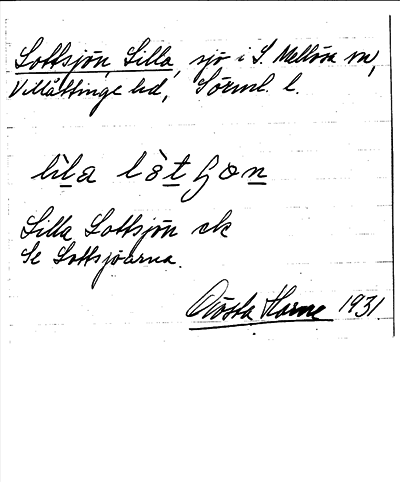 Lottsjön, Lilla, sjö i S. Mellösa sn,
Villåttinge hd, Sörml. l.
lìla lòtʃon
Lilla Lottsjön ek
Se Lottsjöarna.
Gösta Horne 1931